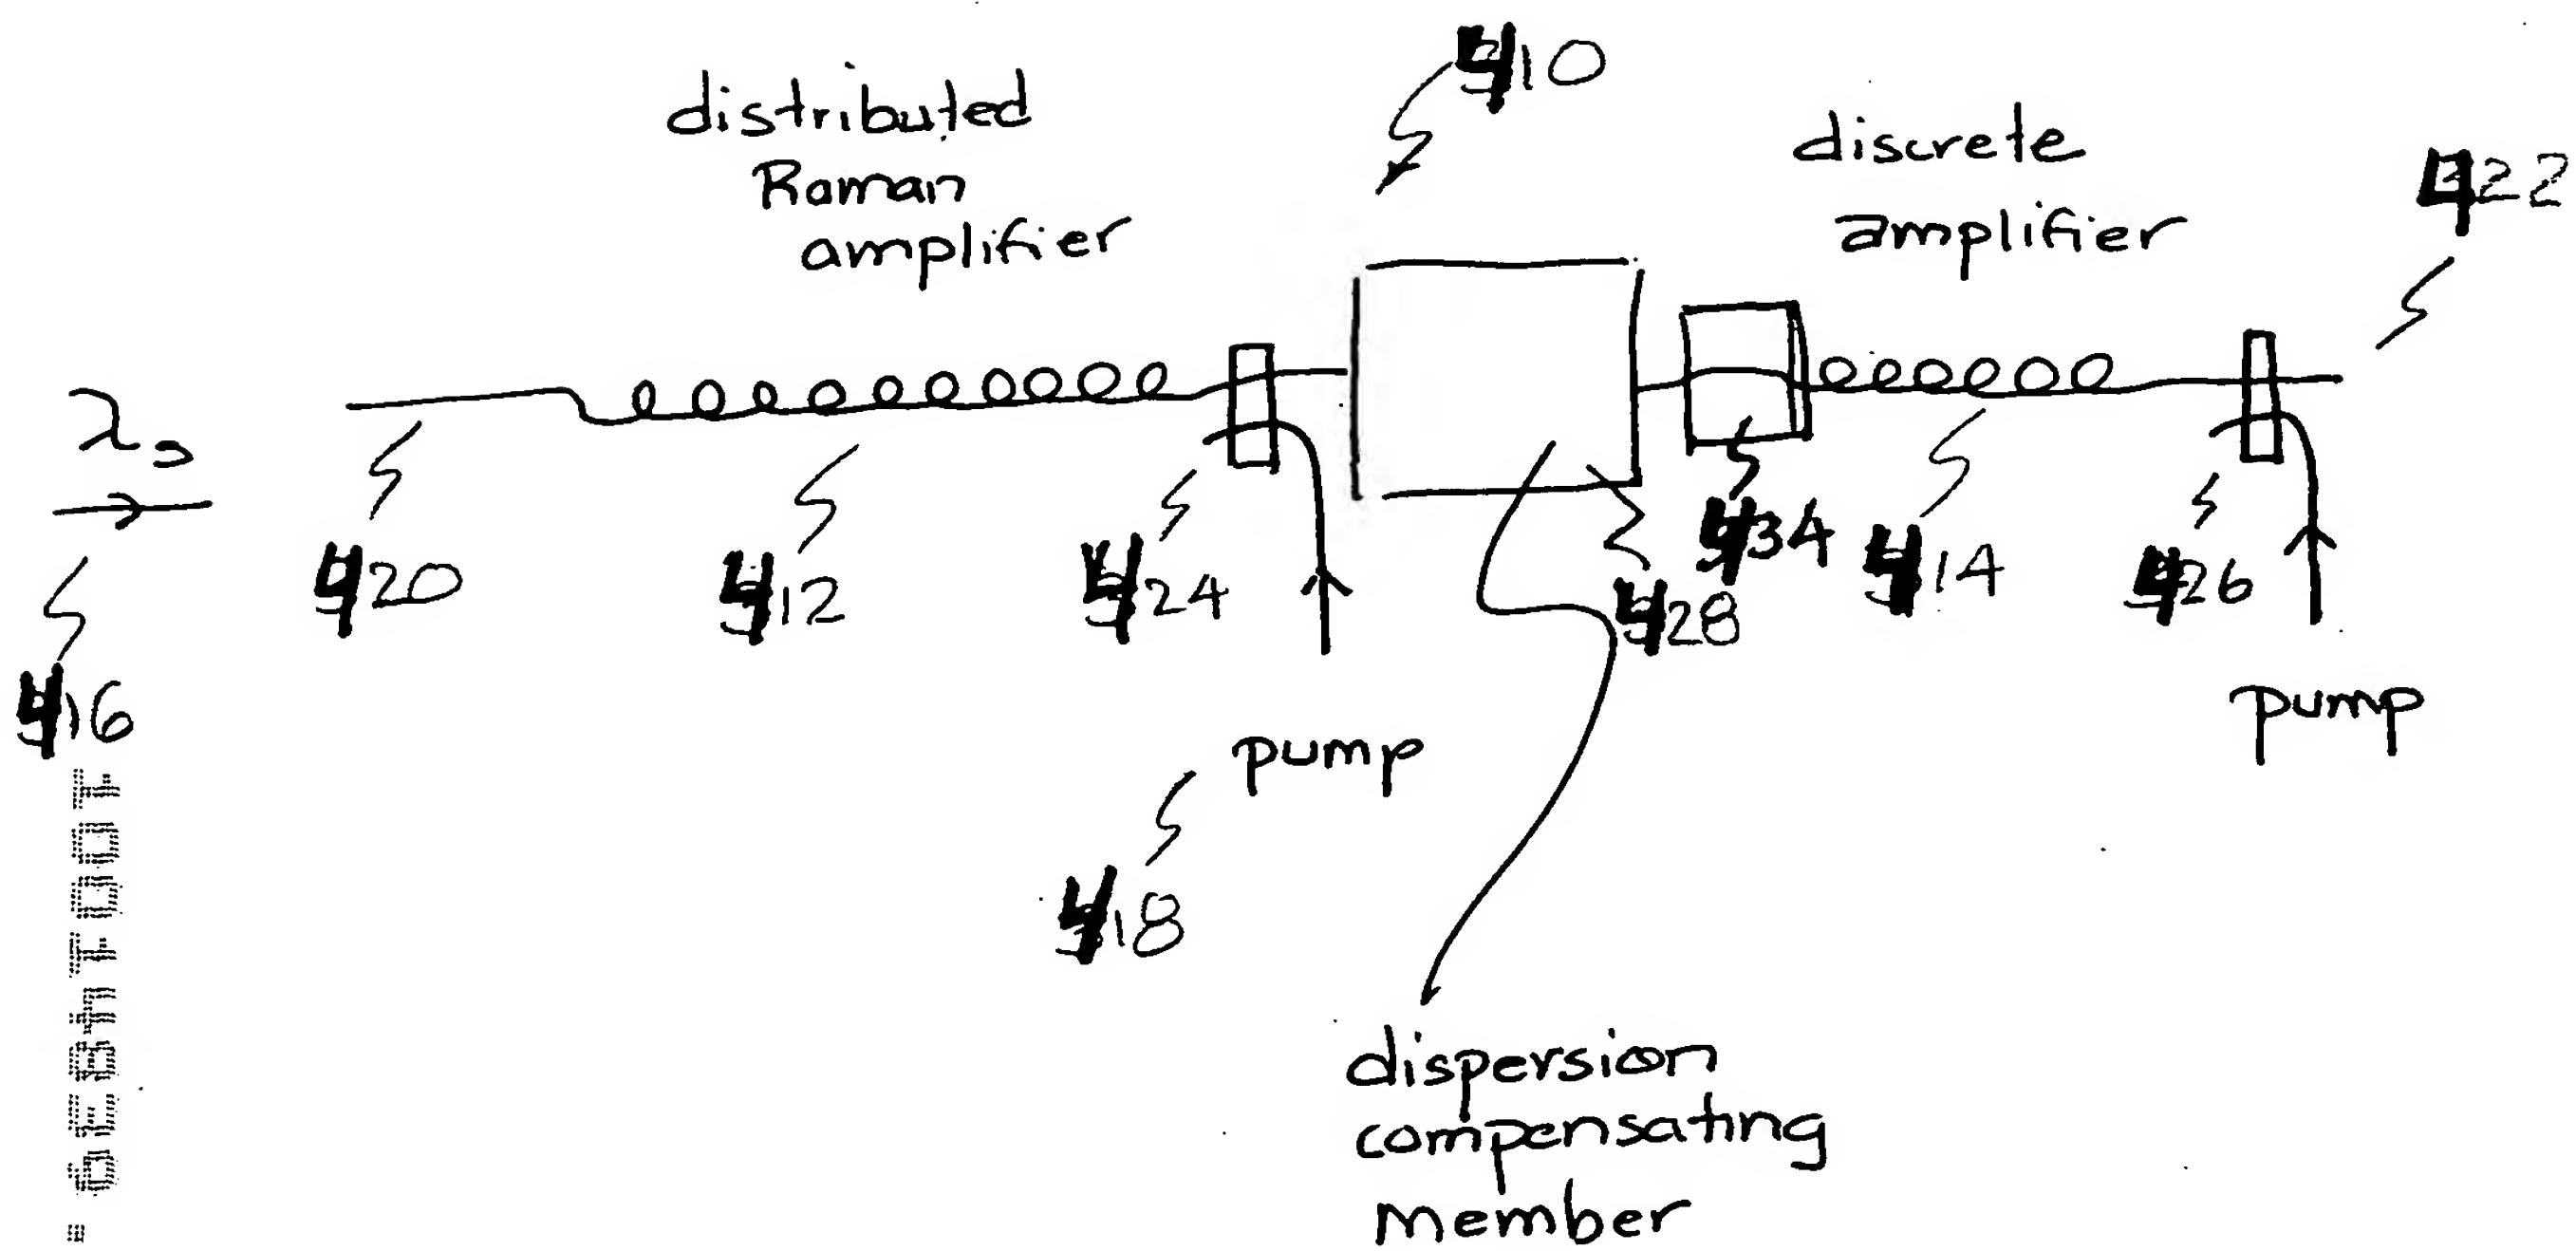 distributed
Raman
amplifier
410
discrete
amplifier
422
λs
420
412
424
428
434
414
426
416
pump
pump
418
dispersion
compensating
member